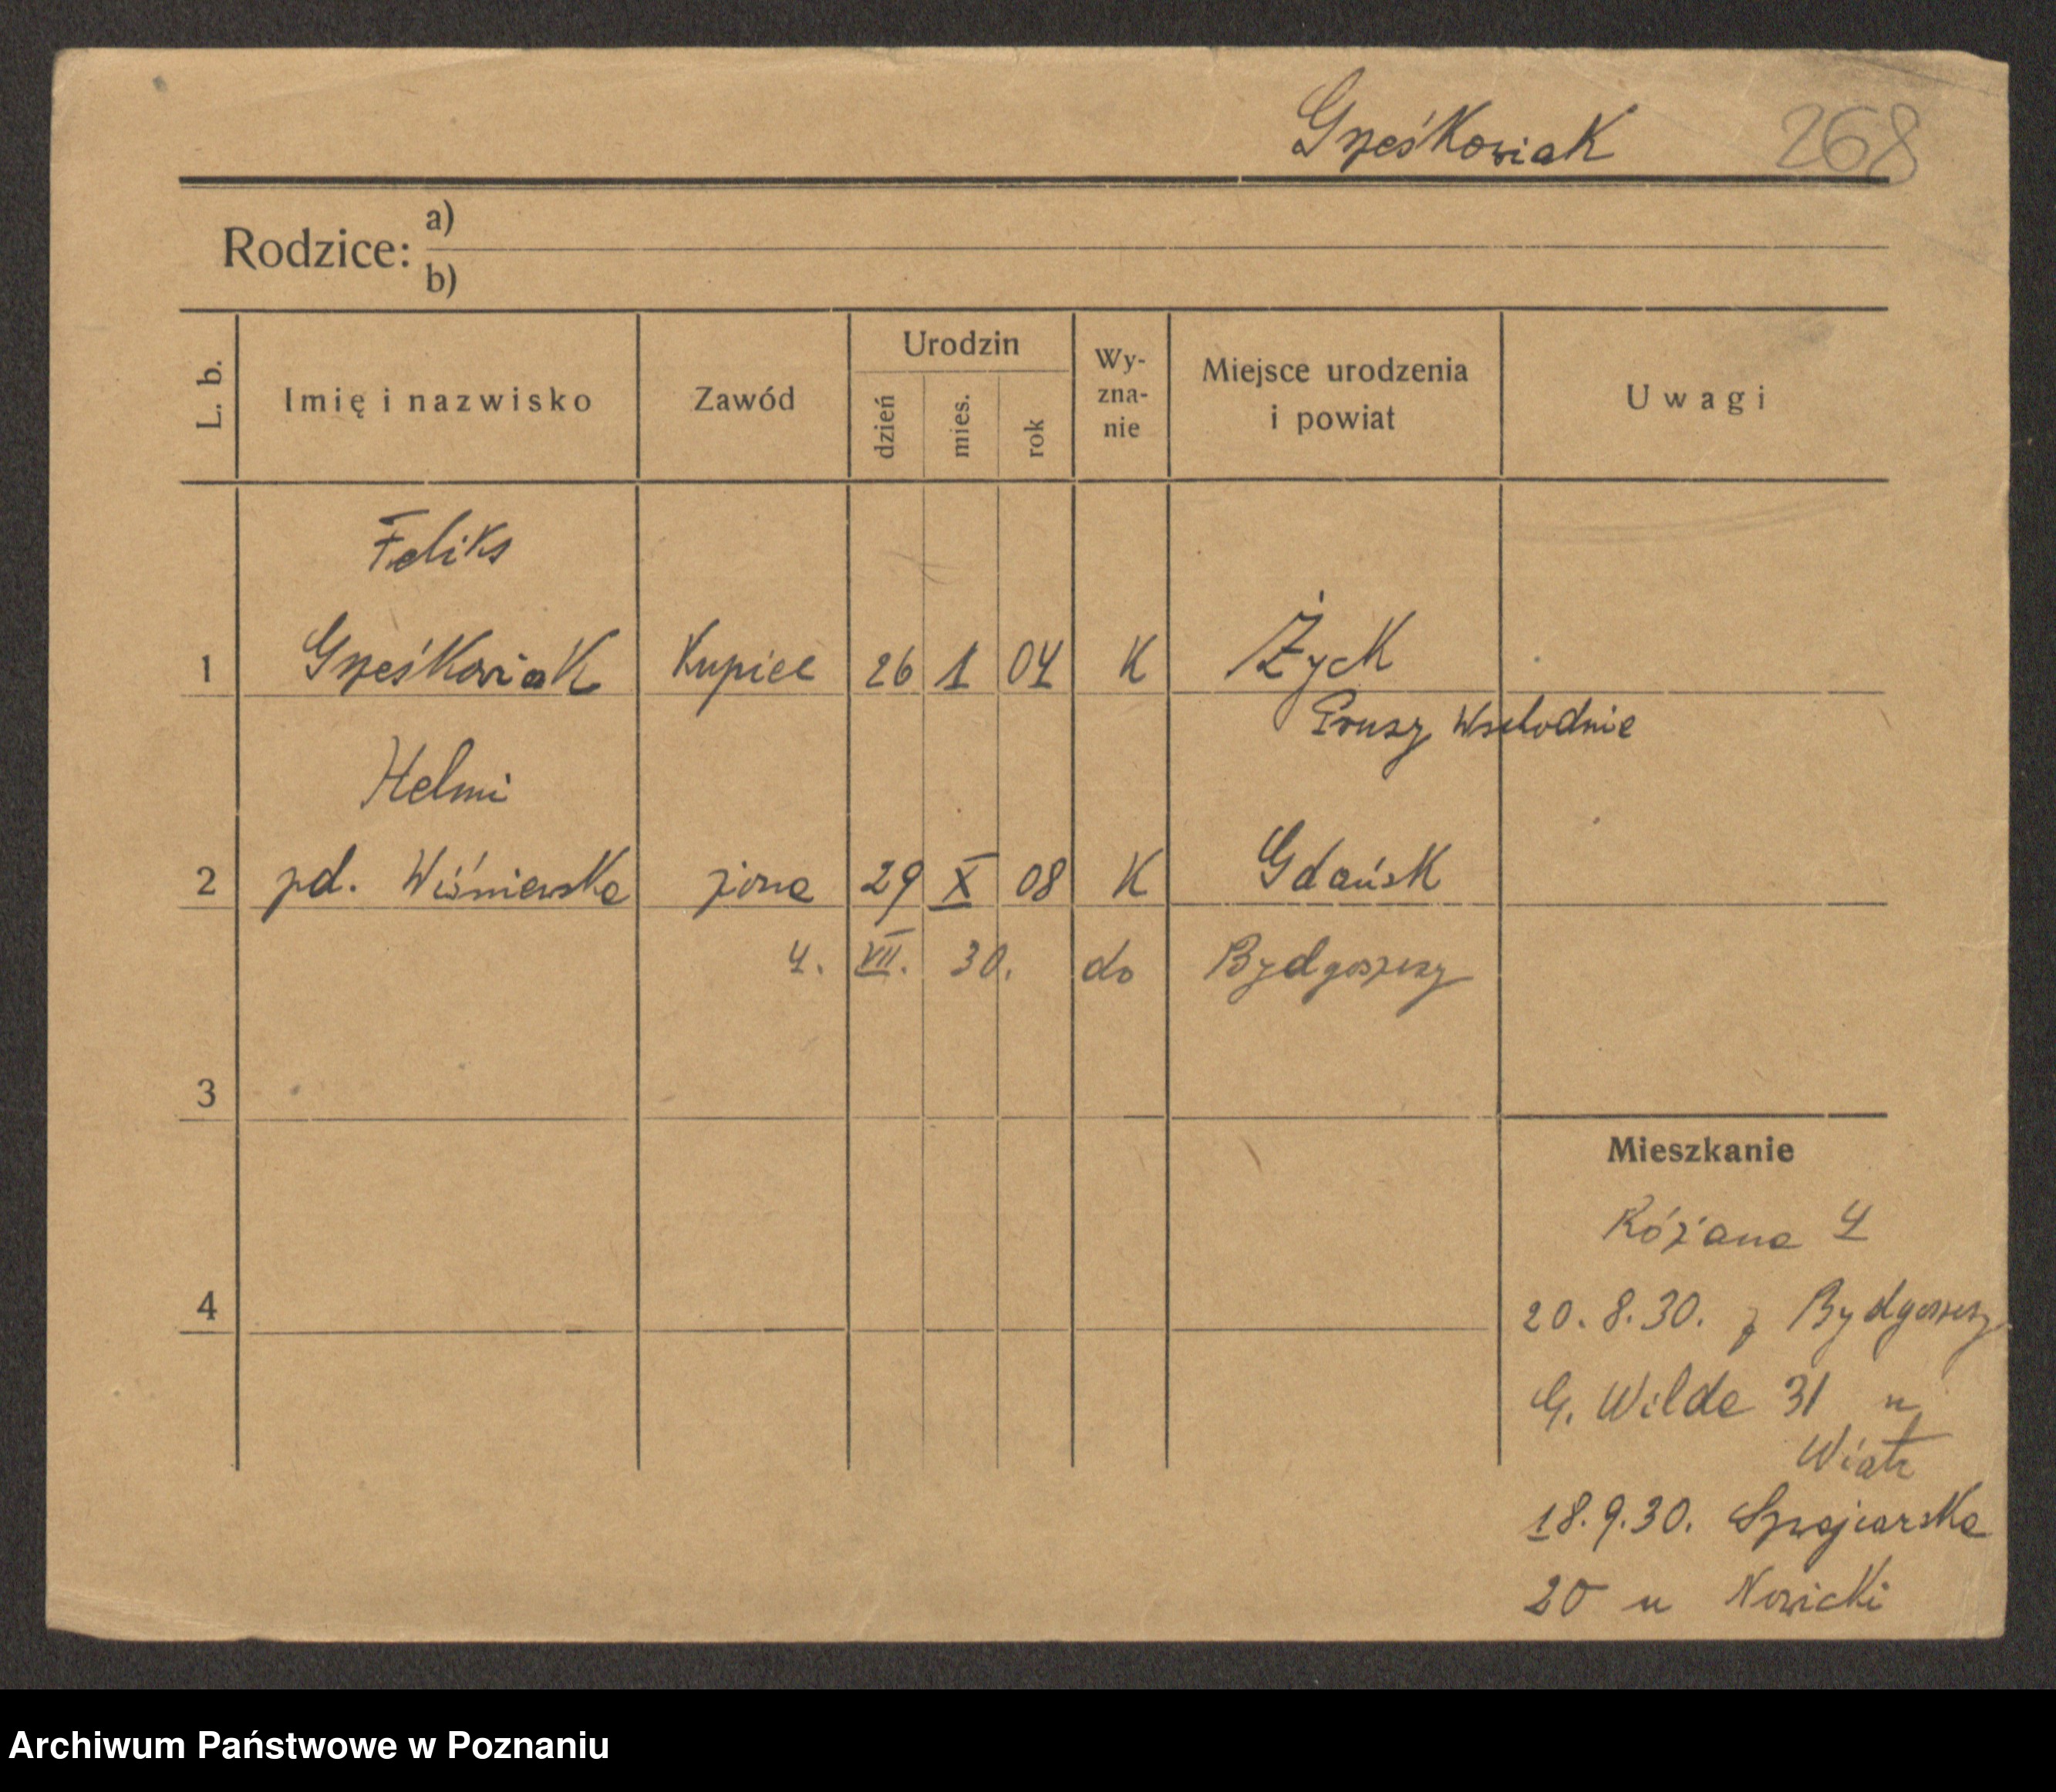 Grześkowiak 268
Rodzice: a)
b)
L. b. Imię i nazwisko Zawód Urodzin dzień mies. rok Wy-zna-nie Miejsce urodzenia i powiat Uwagi
Feliks
1 Grześkowiak Kupiec 26 1 04 K Życk
Prusy Wschodnie
Helmi
2 zd. Wiśniewska żona 29 X 08 K Gdańsk
4. VII. 30. do Bydgoszczy
3
Mieszkanie
Różana 4
4
20.8.30. z Bydgoszczy
G. Wilda 31 u
Wiatr
18.9.30. Szwajcarska
20 u Nowicki
Archiwum Państwowe w Poznaniu